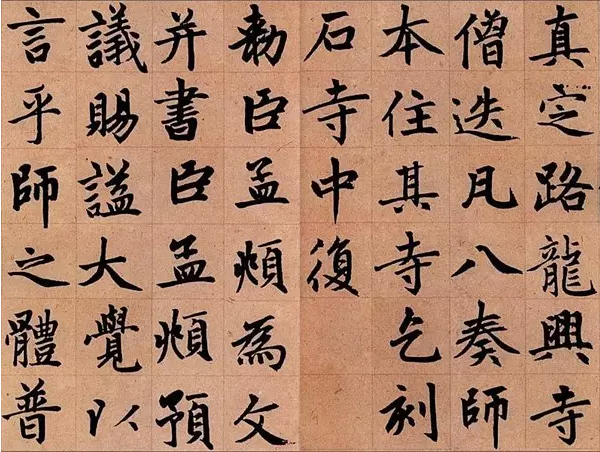 真定路龍興寺
僧迭凡八奏師
本住其寺乞刻
石寺中復
勑臣孟頫為文
并書臣孟頫預
議賜謚大覺以
言乎師之體普